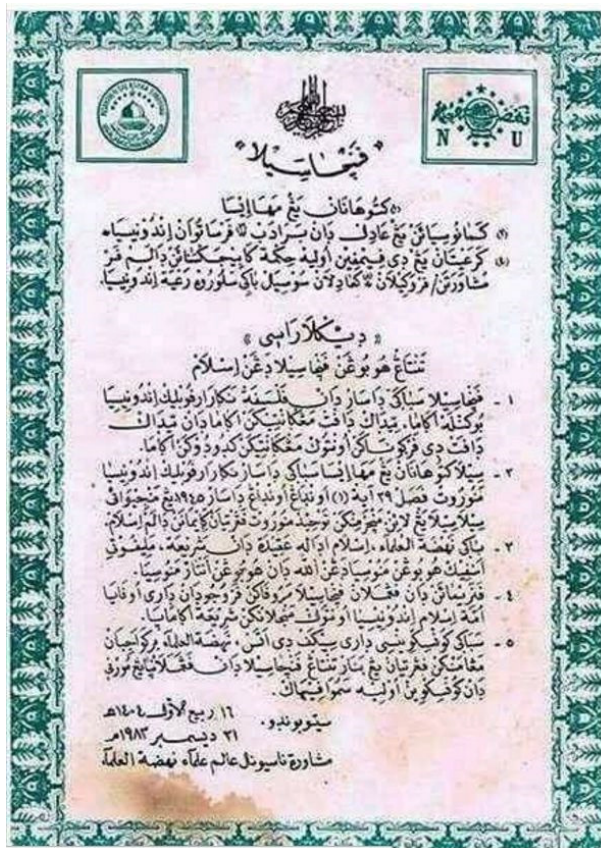 نهضة العلماء
N U
« ڤنچاسيلا »
(١) كتوهانان يڠ مها إيسا
(٢) كمانوسيائن يڠ عادل دان برادب (٣) ڤرساتوان إندونيسيا.
(٤) كرعيتان يڠ دي ڤيمڤين اوليه حكمة كابيجكسانأن دالم ڤر
مشاورتن / ڤرواكيلان (٥) كعاديلان سوسيال باݢي سلوروه رعية إندونيسيا.
« ديكلاراسي »
تنتاڠ هوبوڠن ڤنچاسيلا دڠن إسلام
١ - ڤنچاسيلا سباݢي داسار دان فلسفة نݢارا رڤوبليك إندونيسيا
بوكنله اݢاما، تيداك داڤت مڠݢانتيكن اݢاما دان تيداك
داڤت دي ڤركوناكن اونتوك مڠݢانتيكن كدودوكن اݢاما.
٢ - سيلا كتوهانان يڠ مها إيسا سباݢي داسار نݢارا رڤوبليك إندونيسيا
منوروت فصل ٢٩ آية (١) اونداڠ اونداڠ داسار ١٩٤٥ يڠ منجيواي
سيلا سيلا يڠ لائن، منچرمينكن توحيد منوروت ڤڠرتيان كإيمانن دالم إسلام.
٣ - باݢي نهضة العلماء، إسلام اداله عقيدة دان شريعة، مليڤوتي
اسڤيك هوبوڠن منوسيا دڠن الله دان هوبوڠن انتار منوسيا.
٤ - ڤنريمائن دان ڤڠملان ڤنچاسيلا مروڤاكن ڤروجودان داري اوڤايا
امة إسلام إندونيسيا اونتوك منجلانكن شريعة اݢامانيا.
٥ - سباݢي كونسكوينسي داري سيكڤ دي اتس، نهضة العلماء بركواجيبان
مڠامنكن ڤڠرتيان يڠ بنار تنتاڠ ڤنچاسيلا دان ڤڠملانيا يڠ مورني
دان كونسكوين اوليه سموا ڤيهاك.
سيتوبوندو، ١٦ ربيع الاول ١٤٠٤هـ
٢١ ديسمبر ١٩٨٣م
مشاورة ناسيونل عالم علماء نهضة العلماء